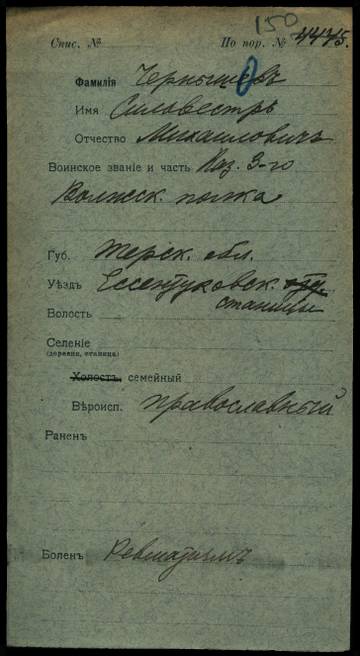 150
Спис. № По пор. № 4475.
Фамилія Чернышевъ
Имя Силовестръ
Отчество Михаиловичъ
Воинское званіе и часть Каз. 3-го
Волжск. полка
Губ. Терск. обл.
Уѣздъ Ессентуковск.
Волость станицы
Селеніе
(деревня, станица)
Холостъ, семейный
Вѣроисп. православный
Раненъ
Боленъ Ревматизмъ